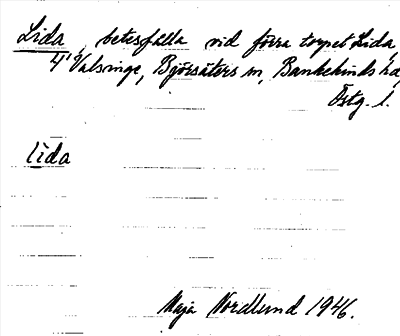 Lida, betesfålla vid förra torpet Lida,
4' Valsinge, Björsäters sn, Bankekinds hd,
Östg. l.
lida
Maja Nordlund 1946.